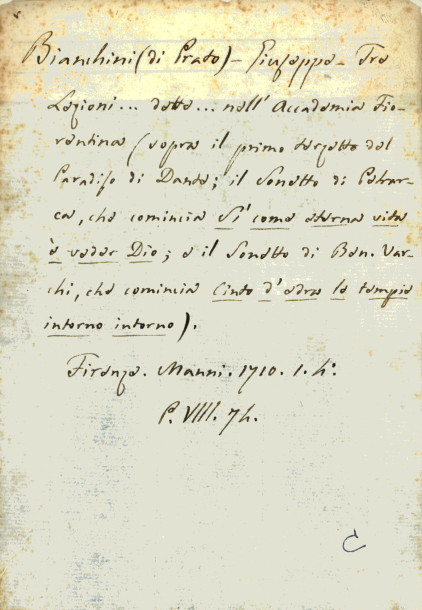 Bianchini (di Prato) - Giuseppe - Tre
Lezioni... dette... nell' Accademia Fio-
rentina (sopra il primo terzetto del
Paradiso di Dante; il Sonetto di Petrar-
ca, che comincia Sì come eterna vita
è veder Dio; e il Sonetto di Ben. Var-
chi, che comincia Cinto d'edra le tempie
intorno intorno).
Firenze. Manni. 1710. 1. 4º.
P. VIII. 74.
C